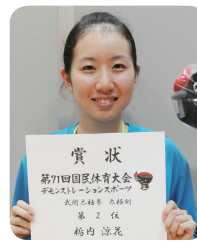 賞状
第71回国民体育大会
デモンストレーションスポーツ
武術太極拳 太極剣
第 2 位
栃内 涼花